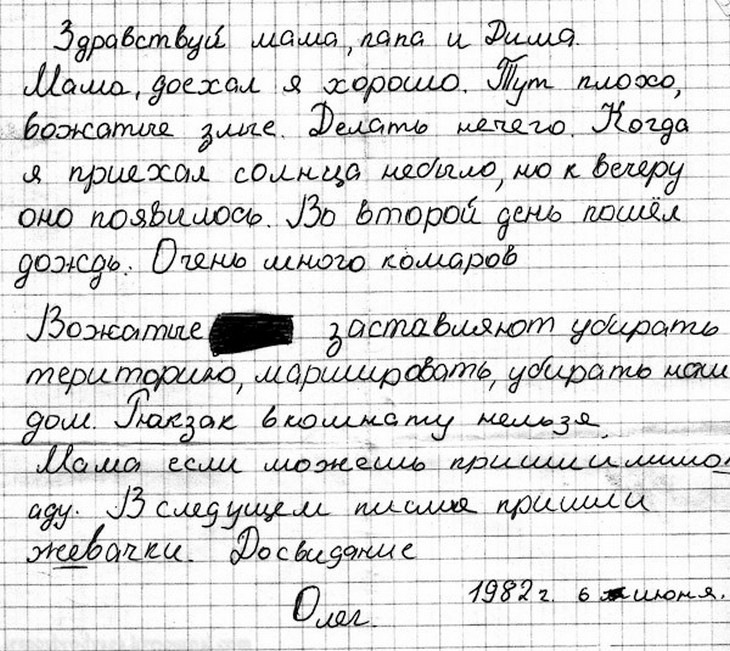 Здравствуй мама, папа и Дима.
Мама, доехал я хорошо. Тут плохо,
вожатые злые. Делать нечего. Когда
я приехал солнца небыло, но к вечеру
оно появилось. Во второй день пошёл
дождь. Очень много комаров
Вожатые заставляют убирать
територию, маршировать, убирать наш
дом. Рюкзак в комнату нельзя.
Мама если можешь пришли лимо-
аду. В следущем писме пришли
жевачки. Досвидание
1982 г. 6 июня.
Олег.